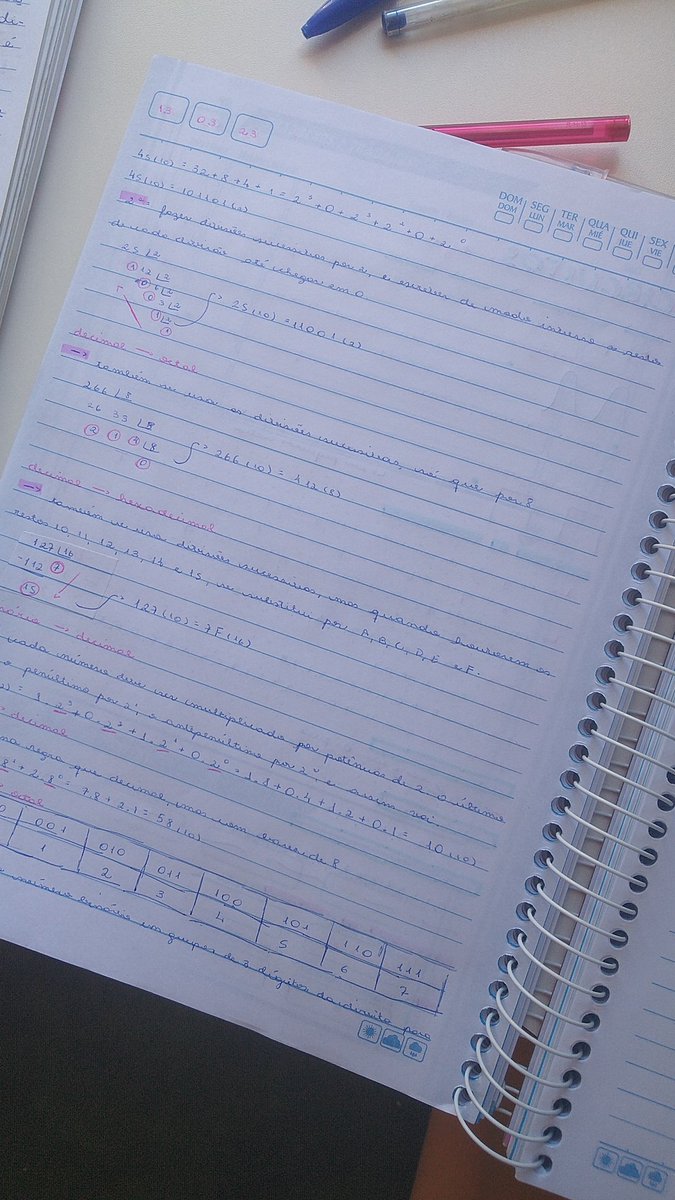 13 03 23
DOM SEG TER QUA QUI SEX
DOM LUN MAR MIÉ JUE VIE
45(10) = 32 + 8 + 4 + 1 = 2⁵ + 0 + 2³ + 2² + 0 + 2⁰
45(10) = 101101(2)
2ª: fazer divisões sucessivas por 2, e escrever de modo inverso o resto
de cada divisão até chegar em 0.
25 2
1 12 2
0 6 2
0 3 2
1 1 2
25(10) = 11001(2)
decimal → octal
→ também se usa as divisões sucessivas, só que por 8
266 8
26 33 8
2 1 4 8
0
266(10) = 412(8)
decimal → hexadecimal
→ também se usa divisões sucessivas, mas quando houverem os
restos 10, 11, 12, 13, 14 e 15, se substitui por A, B, C, D, E e F.
127 16
-112 7
15
127(10) = 7F(16)
→ decimal
cada número deve ser multiplicado por potências de 2. O último
penúltimo por 2¹, o antepenúltimo por 2² e assim vai
= 1.2³ + 0.2² + 1.2¹ + 0.2⁰ = 1.8 + 0.4 + 1.2 + 0.1 = 10(10)
decimal
regra que decimal, mas com base de 8
8¹ + 2.8⁰ = 7.8 + 2.1 = 58(10)
octal
001 010 011 100 101 110 111
1 2 3 4 5 6 7
número binário em grupos de 3 dígitos da direita para